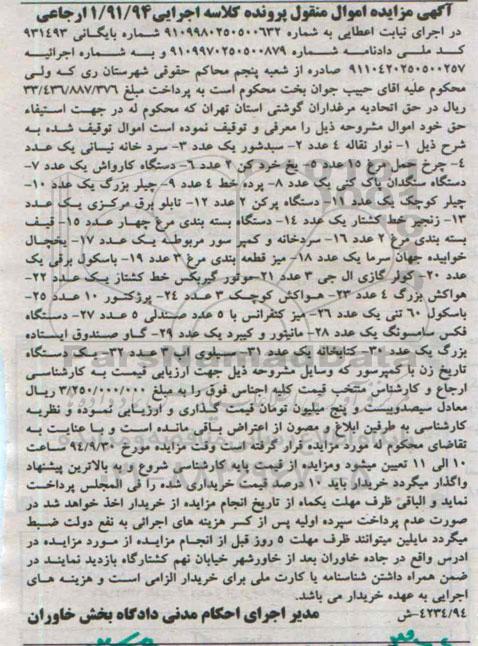 آگهی مزایده اموال منقول پرونده کلاسه اجرایی ۱/۹۱/۹۴ ارجاعی
در اجرای نیابت اعطایی به شماره ۹۱۰۹۹۸۰۲۵۰۵۰۰۶۳۲ شماره بایگانی ۹۳۱۴۹۳
کد ملی دادنامه شماره ۹۱۰۹۹۷۰۲۵۰۵۰۰۸۷۹ و به شماره اجرائیه
۹۱۱۰۴۲۰۲۵۰۵۰۰۲۵۷ صادره از شعبه پنجم محاکم حقوقی شهرستان ری که ولی
محکوم علیه اقای حبیب جوان بخت محکوم است به پرداخت مبلغ ۳۳/۴۳۶/۸۸۷/۳۷۶
ریال در حق اتحادیه مرغداران گوشتی استان تهران که محکوم له در جهت استیفاء
حق خود اموال مشروحه ذیل را معرفی و توقیف نموده است اموال توقیف شده به
شرح ذیل ۱- نوار نقاله ٤ عدد ۲- سبدشور یک عدد ۳- سرد خانه نیسانی یک عدد
٤- چرخ حمل مرغ ۱۵ عدد ۵- یخ خرد کن ۲ عدد ۶- دستگاه کارواش یک عدد ۷-
دستگاه سنگدان پاک کنی یک عدد ۸- پرده خط ٤ عدد ۹- چیلر بزرگ یک عدد ۱۰-
چیلر کوچک یک عدد ۱۱- دستگاه پرکن ۲ عدد ۱۲- تابلو برق مرکزی یک عدد
۱۳- زنجیر خط کشتار یک عدد ۱٤- دستگاه بسته بندی مرغ چهار عدد ۱۵- قیف
بسته بندی مرغ ۲ عدد ۱۶- سردخانه و کمپر سور مربوطه یک عدد ۱۷- یخچال
خوابیده جهان سرما یک عدد ۱۸- میز قطعه بندی مرغ ۳ عدد ۱۹- باسکول برقی یک
عدد ۲۰- کولر گازی ال جی ۳ عدد ۲۱-موتور گیربکس خط کشتار یک عدد ۲۲-
هواکش بزرگ ٤ عدد ۲۳- هواکش کوچک ۳ عدد ۲٤- پرژکتور ۱۰ عدد ۲۵-
باسکول ۶۰ تنی یک عدد ۲۶- میز کنفرانس با ۵ عدد صندلی ۵ عدد ۲۷- دستگاه
فکس سامسونگ یک عدد ۲۸- مانیتور و کیبرد یک عدد ۲۹- گاو صندوق ایستاده
بزرگ یک عدد ۳۰- کتابخانه یک عدد ۳۱- سیلوی آرد ۲ عدد ۳۲- یک دستگاه
تاریخ زن با کمپرسور که وسایل مشروحه ذیل جهت ارزیابی قیمت به کارشناسی
ارجاع و کارشناس منتخب قیمت کلیه اجناس فوق را به مبلغ ۳/۲۵۰/۰۰۰/۰۰۰ ریال
معادل سیصدوبیست و پنج میلیون تومان قیمت گذاری و ارزیابی نموده و نظریه
کارشناسی به طرفین ابلاغ و مصون از اعتراض باقی مانده است و با عنایت به
تقاضای محکوم له مورد مزایده قرار گرفته است وقت مزایده مورخ ۹۴/۹/۳۰ ساعت
۱۰ الی ۱۱ تعیین میشود ومزایده از قیمت پایه کارشناسی شروع و به بالاترین پیشنهاد
واگذار میگردد خریدار باید ۱۰ درصد قیمت خریداری شده را فی المجلس پرداخت
نماید و الباقی ظرف مهلت یکماه از تاریخ انجام مزایده از خریدار اخذ خواهد شد در
صورت عدم پرداخت سپرده اولیه پس از کسر هزینه های اجرائی به نفع دولت ضبط
میگردد مایلین میتوانند ظرف مهلت ۵ روز قبل از انجام مزایده از مورد مزایده در
ادرس واقع در جاده خاوران بعد از خاورشهر خیابان نهم کشتارگاه بازدید نمایند در
ضمن همراه داشتن شناسنامه یا کارت ملی برای خریدار الزامی است و هزینه های
اجرایی به عهده خریدار می باشد.
۴۲۳۴/۹۴-ش مدیر اجرای احکام مدنی دادگاه بخش خاوران